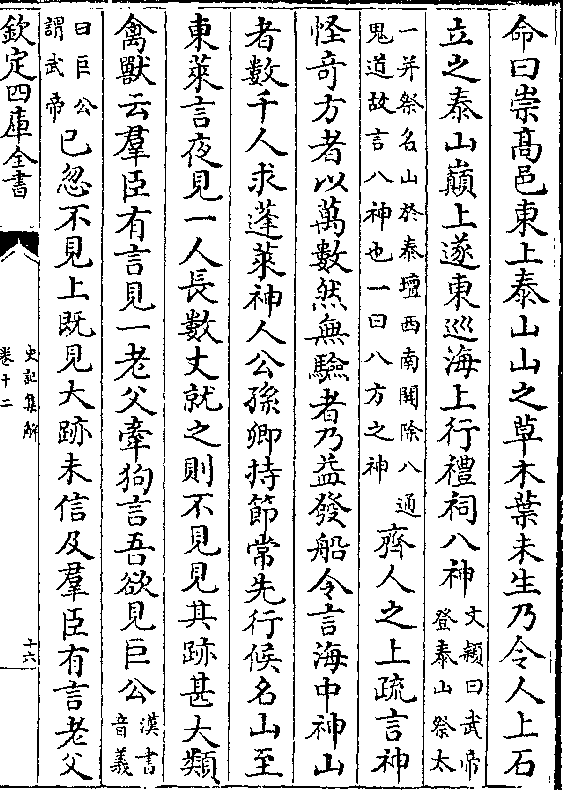 命曰崇髙邑東上泰山山之草木葉未生乃令人上石
立之泰山巔上遂東巡海上行禮祠八神文穎曰武帝登泰山祭太
一并祭名山於泰壇西南開除八通鬼道故言八神也一曰八方之神齊人之上疏言神
怪竒方者以萬數然無驗者乃益發船令言海中神山
者數千人求蓬萊神人公孫卿持節常先行候名山至
東萊言夜見一人長數丈就之則不見見其跡甚大類
禽獸云羣臣有言見一老父牽狗言吾欲見巨公漢書音義
曰巨公謂武帝已忽不見上既見大跡未信及羣臣有言老父
欽定四庫全書
史記集解
卷十二
十六